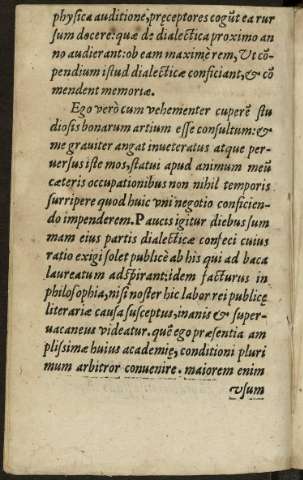 physica auditione, preceptores cogūt ea rur
sum docere: quæ de dialectica proximo an
no audierant: ob eam maximè rem, Vt cō-
pendium istud dialecticæ conficiant, & cō
mendent memoriæ.
Ego verò cum vehementer cuperē stu
diosis bonarum artium esse consultum: &
me grauiter angat inueteratus atque per-
uersus iste mos, statui apud animum meū
cæteris occupationibus non nihil temporis
surripere quod huic vni negotio conficien-
do impenderem. Paucis igitur diebus sum
mam eius partis dialecticæ confeci cuius
ratio exigi solet publicè ab his qui ad baca
laureatum adspirant: idem facturus in
philosophia, nisi noster hic labor rei publicę
literariæ causa susceptus, inanis & super-
uacaneus videatur. quē ego præsentia am
plissimæ huius academię, conditioni pluri
mum arbitror conuenire. maiorem enim
vsum